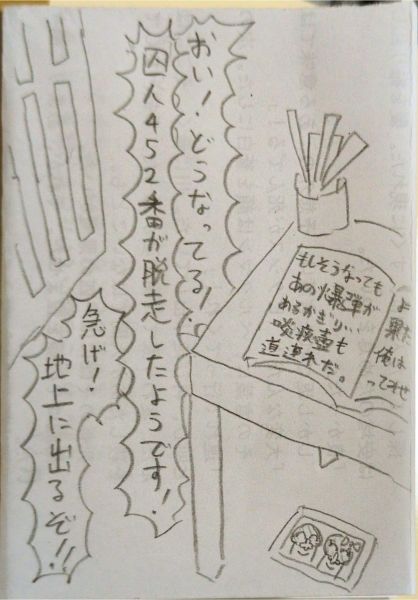 もしそうなっても
あの爆弾が
あるかぎり、
啖痰壺も
道連れだ。
よ
果た
俺は
おい!どうなってる!
囚人452番が脱走したようです!
急げ!
地上に出るぞ!!